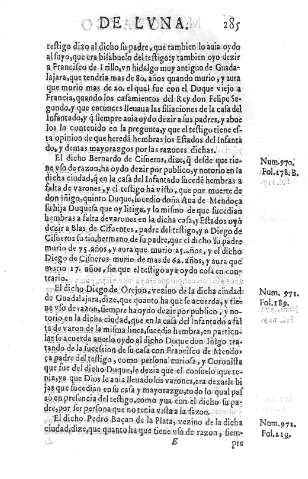 DE LVNA. 285
testigo dizo al dicho su padre, que tambien lo auia oydo
al suyo, que era bisabuelo del testigo; y tambien oyo dezir
a Francisco de Trillo, vn hidalgo muy antiguo de Guada-
lajara, que tendria mas de 80. años quando murio, y aura
que murio mas de 20. el qual fue con el Duque viejo a
Francia, quando los casamientos del Rey don Felipe Se-
gundo, y que entonces llevaua las filiaciones de la casa del
Infantado, y q̃ siempre auia oydo dezir a sus padres, y abue
los lo contenido en la pregunta, y que el testigo tiene es-
ta opinion de que heredã hembras los Estados del Infanta
do, y demas mayorazgos por las razones dichas.
El dicho Bernardo de Cisneros, dize, q̃ desde que tie-
ne vso de razon, ha oydo dezir por publico, y notorio en la
dicha ciudad, q̃ en la casa del Infantado sucedẽ hembras a
falta de varones, y el testigo ha visto, que por muerte de
don Iñigo, quinto Duque, sucedio doña Ana de Mendoça
su hija Duquesa que oy litiga, y lo mismo de que sucedian
hembras a falta de varones en la dicha casa, y Estados oyò
dezir a Blas de Cifuentes, padre del testigo, y a Diego de
Cisneros su tio, hermano de su padre, que el dicho su padre
murio de 75. años, y aura que murio 25. años, y el dicho
Diego de Cisneros murio de mas de 62. años, y aura que
murio 17. años, sin que el testigo aya oydo cosa en con-
trario.
El dicho Diego de Orejon, vezino de la dicha ciudad
de Guadalajara, dize, que quanto ha que se acuerda, y tie-
ne vso de razon, siempre ha oydo dezir por publico, y no-
torio en la dicha ciudad, que en la casa del Infantado a fal
ta de varon de la misma linea, sucedio hembra, en particu-
lar se acuerda auerlo oydo al dicho Duque don Iñigo tra-
tando de la succession de su casa con Francisco de Mendo-
ça padre del testigo, como persona curiosa, y Coronista
que fue del dicho Duque, le dezia que el consuelo que te-
nia, ya que Dios se auia lleuado los varones, era dexarle hi
jas que sucedian en su casa y mayorazgo, todo lo qual pas
sò en presencia del testigo, como yua con el dicho su pa-
dre, por ser persona que no tenia vista a la sazon.
El dicho Pedro Baçan de la Plata, vezino de la dicha
ciudad, dize, que quanto ha que tiene vso de razon, siem-
E pre
Num. 970.
Fol. 178. B.
Num. 971.
Fol. 189.
Num. 972.
Fol. 219.